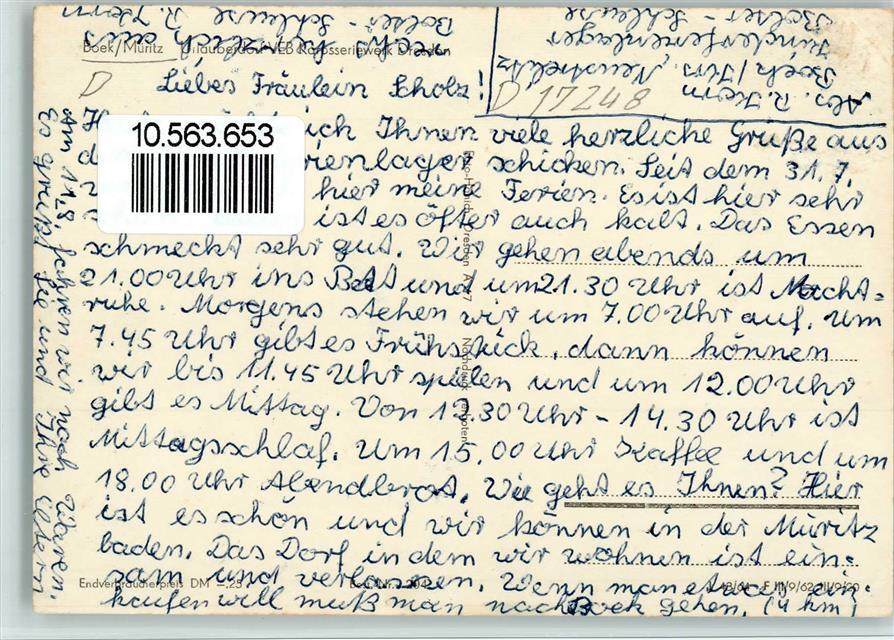 Boek/Müritz Urlauberdorf VEB Karosseriewerk Dresden
D
Liebes Fräulein Scholz!
Abs. R. Kern
Boek/Krs. Neustrelitz
Kinderferienlager
Bolter-Schleuse
D 17248
10.563.653
ich Ihnen viele herzliche Grüße aus
rienlager schicken. Seit dem 31.7.
hier meine Ferien. Es ist hier sehr
ist es öfter auch kalt. Das Essen
schmeckt sehr gut. Wir gehen abends um
21.00 Uhr ins Bett und um 21.30 Uhr ist Nacht=
ruhe. Morgens stehen wir um 7.00 Uhr auf. Um
7.45 Uhr gibt es Frühstück, dann können
wir bis 11.45 Uhr spielen und um 12.00 Uhr
gibt es Mittag. Von 12.30 Uhr - 14.30 Uhr ist
Mittagsschlaf. Um 15.00 Uhr Kaffee und um
18.00 Uhr Abendbrot. Wie geht es Ihnen? Hier
ist es schön und wir können in der Müritz
baden. Das Dorf in dem wir wohnen ist ein=
sam und verlassen. Wenn man etwas ein=
kaufen will muß man nach Boek gehen. (4 km)
Endverbraucherpreis DM
III/9/62
Am 11.8. fahren wir nach
Es grüßt Sie und Ihre Eltern
recht herzlich aus
Bolter-Schleuse R. Kern